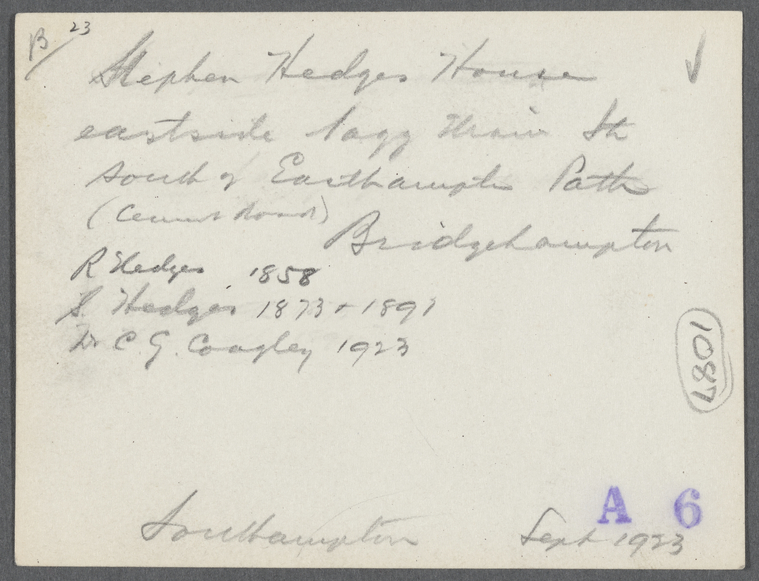 B/23
Stephen Hedges House
eastside Sagg Main St
south of Easthampton Path
(Cement Road)
Bridgehampton
R Hedges 1858
S. Hedges 1873 + 1897
C. G. 1923
1087
A 6
Southampton Sept 1923